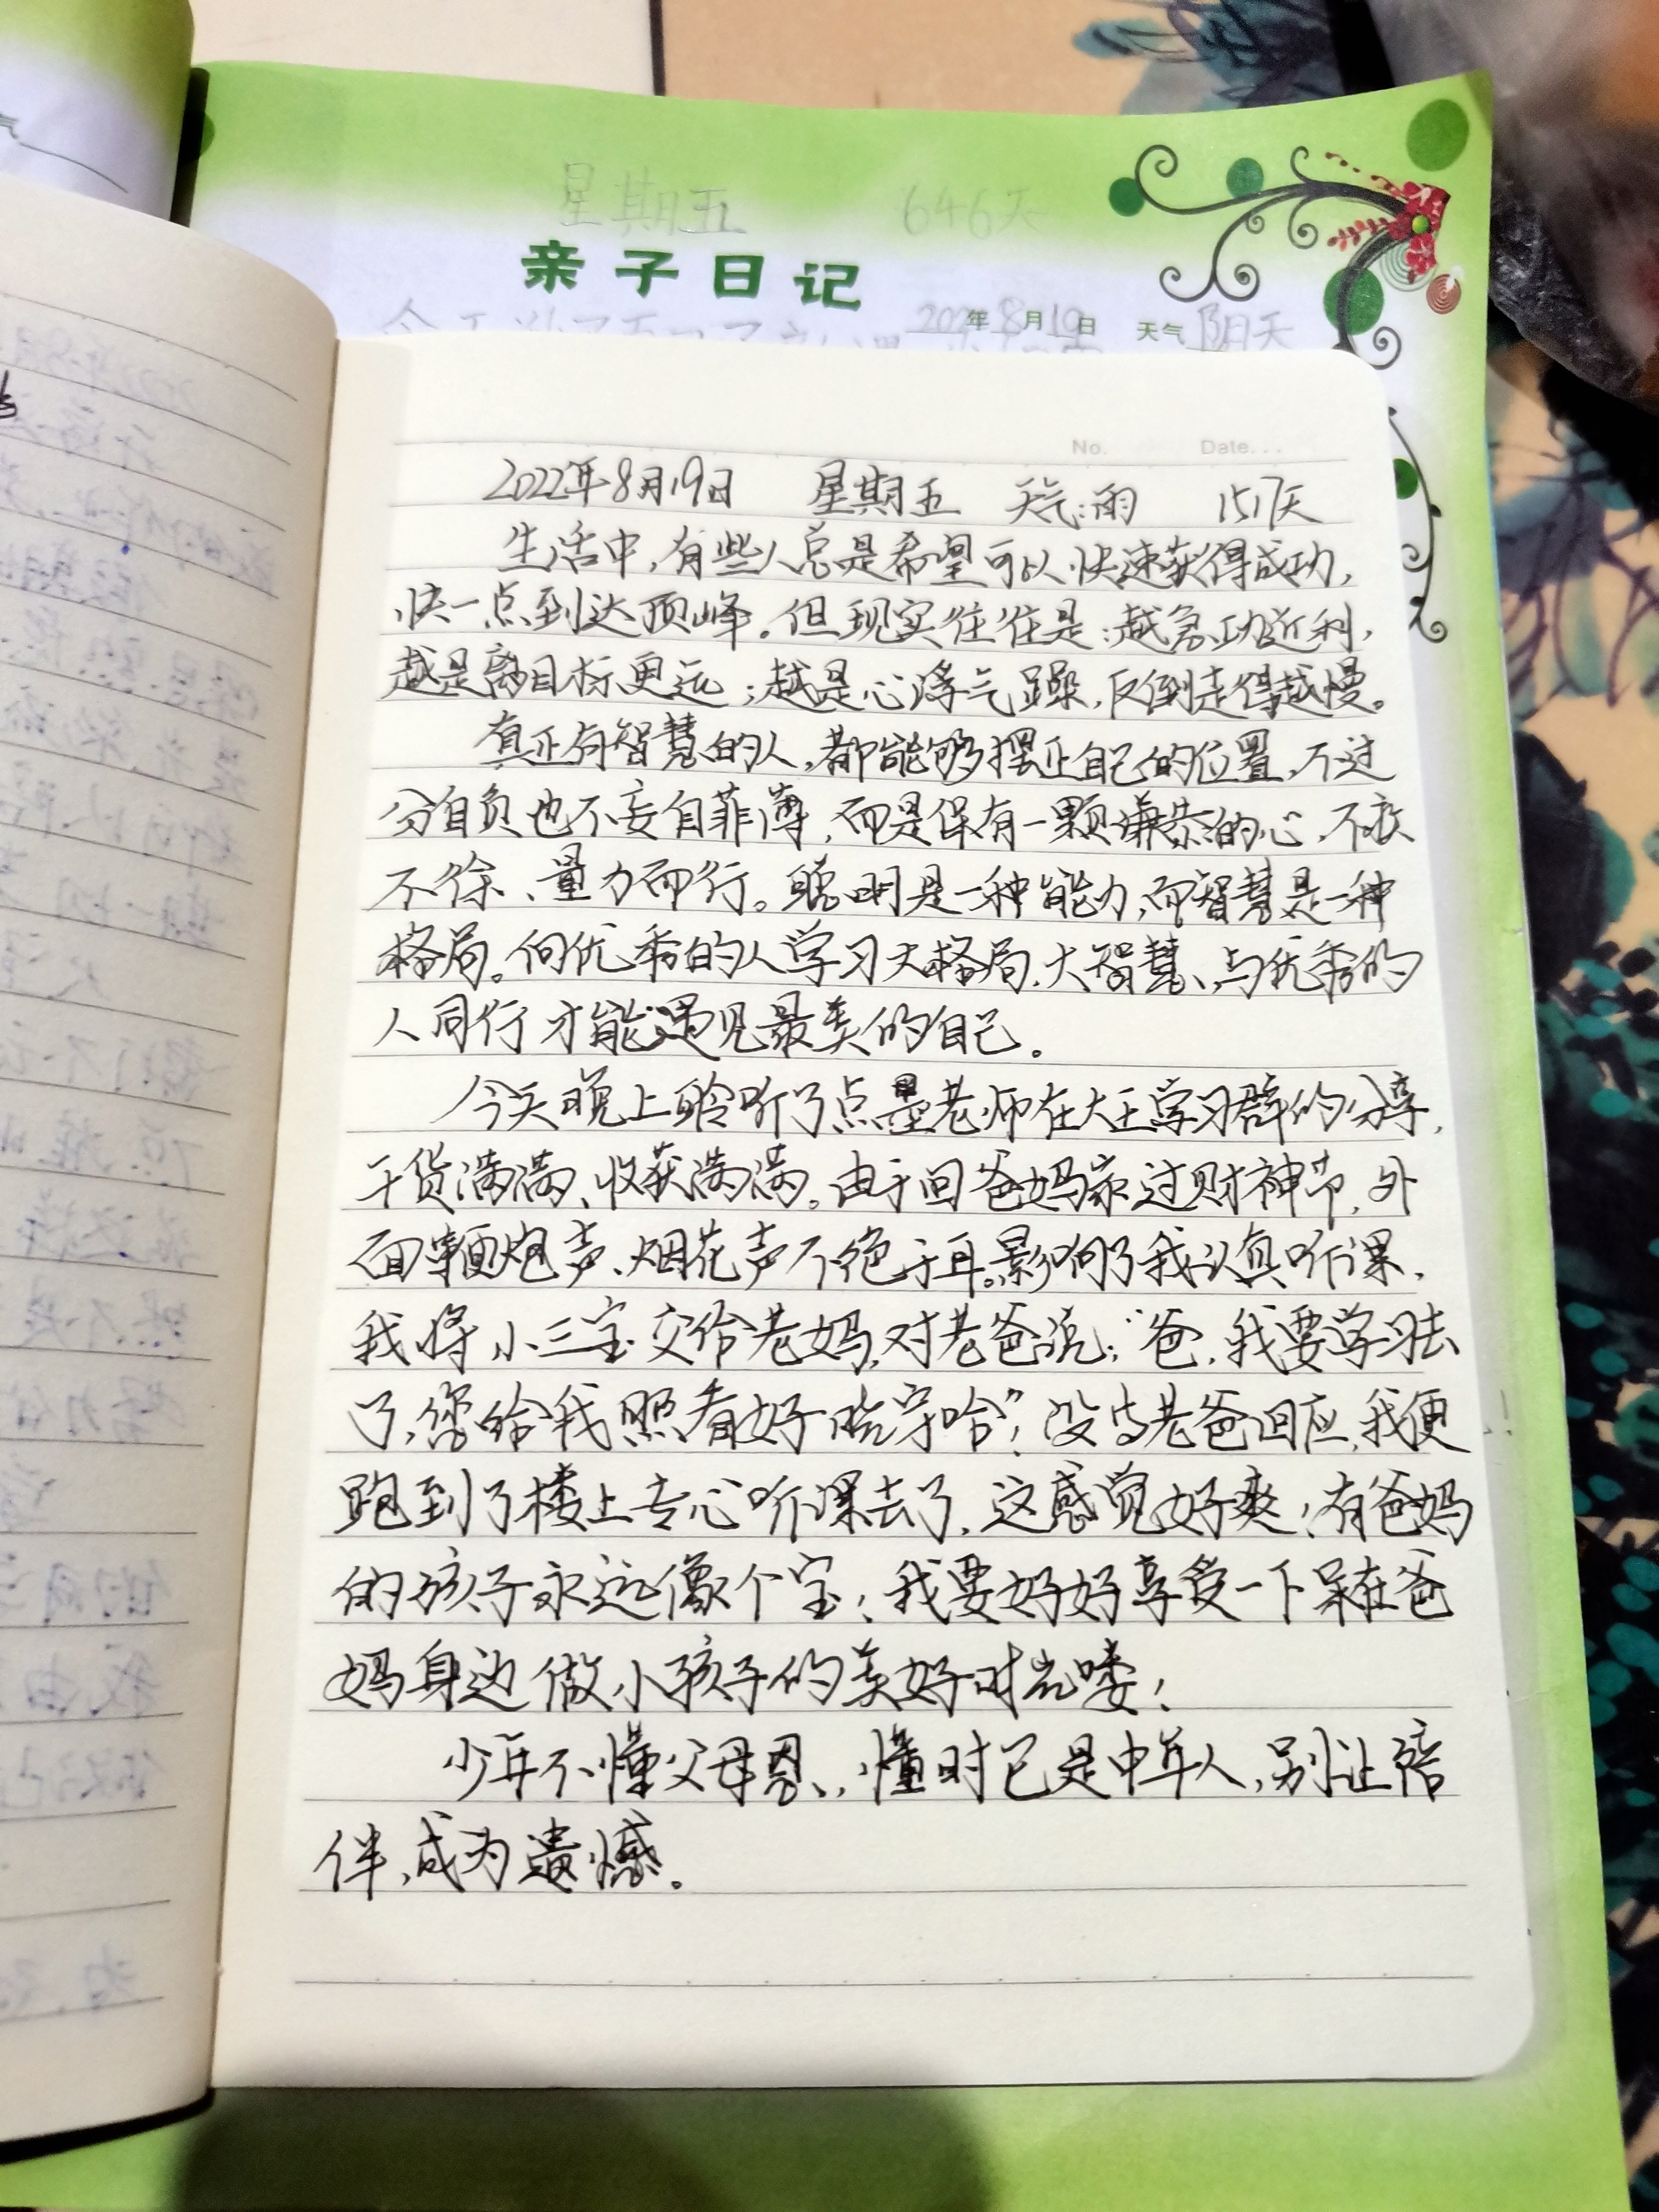 星期五 646天
亲子日记
2022年8月19日 天气 阴天
No. Date...
2022年8月19日 星期五 天气:雨 1517天
生活中,有些人总是希望可以快速获得成功,
快一点到达顶峰。但现实往往是:越急功近利,
越是离目标更远;越是心浮气躁,反倒走得越慢。
真正有智慧的人,都能够摆正自己的位置,不过
分自负也不妄自菲薄,而是保有一颗谦恭的心,不疾
不徐、量力而行。聪明是一种能力,而智慧是一种
格局。向优秀的人学习大格局,大智慧、与优秀的
人同行才能遇见最美的自己。
今天晚上聆听了点墨老师在大王学习群的分享,
干货满满、收获满满。由于回爸妈家过财神节,外
面鞭炮声、烟花声不绝于耳。影响了我认真听课,
我将小三宝交给老妈,对老爸说:“爸,我要学习去
了,您给我照看好皓宇哈”!没等老爸回应,我便
跑到了楼上专心听课去了,这感觉好爽!有爸妈
的孩子永远像个宝!我要好好享受一下呆在爸
妈身边做小孩子的美好时光喽!
少年不懂父母恩、,懂时已是中年人,别让陪
伴,成为遗憾。